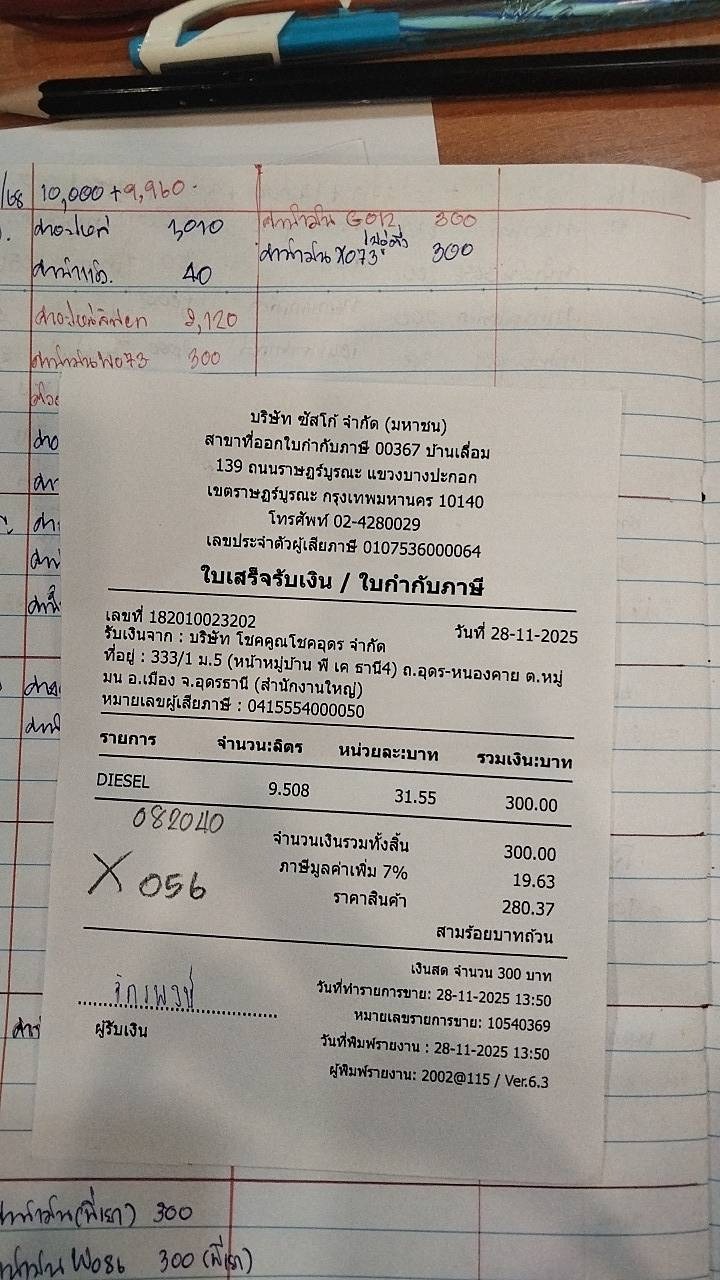 /68 10,000 + 9,960.-
ค่าอะไหล่ 3,010
ค่าน้ำมัน G012 300
40
ค่าน้ำมัน X073 300
2,120
ค่าน้ำมัน W073 300
บริษัท ซัสโก้ จำกัด (มหาชน)
สาขาที่ออกใบกำกับภาษี 00367 บ้านเลื่อม
139 ถนนราษฏร์บูรณะ แขวงบางปะกอก
เขตราษฏร์บูรณะ กรุงเทพมหานคร 10140
โทรศัพท์ 02-4280029
เลขประจำตัวผู้เสียภาษี 0107536000064
ใบเสร็จรับเงิน / ใบกำกับภาษี
เลขที่ 182010023202
วันที่ 28-11-2025
รับเงินจาก : บริษัท โชคคูณโชคอุดร จำกัด
ที่อยู่ : 333/1 ม.5 (หน้าหมู่บ้าน พี เค ธานี4) ถ.อุดร-หนองคาย ต.หมู่
มน อ.เมือง จ.อุดรธานี (สำนักงานใหญ่)
หมายเลขผู้เสียภาษี : 0415554000050
รายการ จำนวน:ลิตร หน่วยละ:บาท รวมเงิน:บาท
DIESEL 9.508 31.55 300.00
082040
จำนวนเงินรวมทั้งสิ้น 300.00
ภาษีมูลค่าเพิ่ม 7% 19.63
X 056
ราคาสินค้า 280.37
สามร้อยบาทถ้วน
เงินสด จำนวน 300 บาท
จักรพงษ์
วันที่ทำรายการขาย: 28-11-2025 13:50
หมายเลขรายการขาย: 10540369
ผู้รับเงิน
วันที่พิมพ์รายงาน : 28-11-2025 13:50
ผู้พิมพ์รายงาน: 2002@115 / Ver.6.3
ค่าน้ำมัน(พี่เรา) 300
ค่าน้ำมัน W086 300 (พี่เรา)